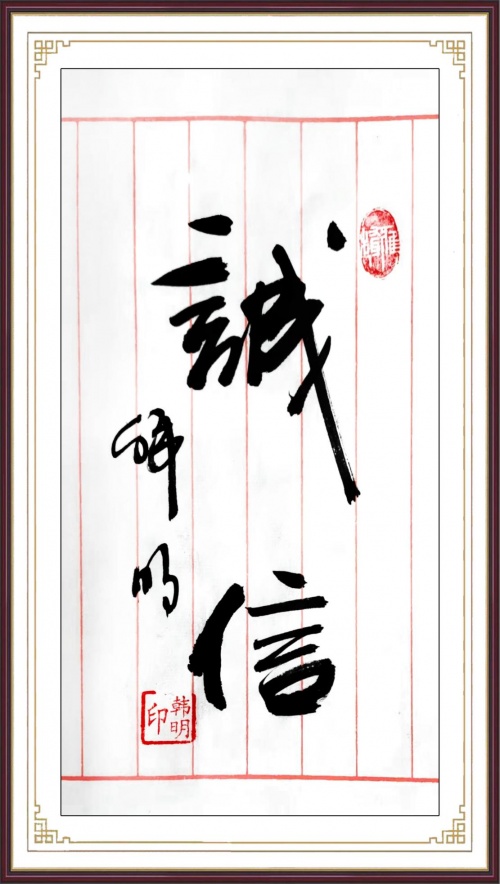 誠信
韩明
韩明印